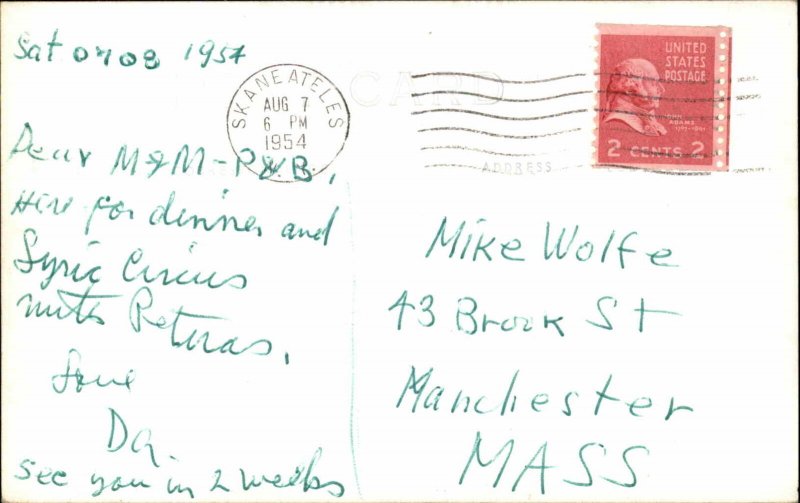 Sat 0708 1954
SKANEATELES
AUG 7
6 PM
1954
CARD
ADDRESS
UNITED
STATES
POSTAGE
JOHN
ADAMS
1797-1801
2 CENTS 2
Dear M&M-P&B,
Here for dinner and
Lyric Circus
with Peturas,
Love
Da.
see you in 2 weeks
Mike Wolfe
43 Brook St
Manchester
MASS